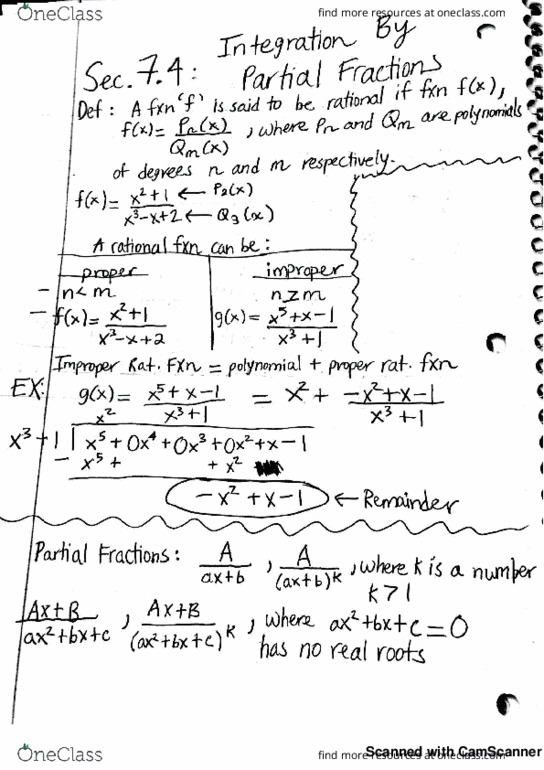 OneClass
find more resources at oneclass.com
Integration By
Sec. 7.4: Partial Fractions
Def: A fxn 'f' is said to be rational if fxn f(x),
f(x) = Pn(x)/Qm(x), where Pn and Qm are polynomials
of degrees n and m respectively.
f(x) = x²+1 ← P2(x)
x³-x+2 ← Q3(x)
A rational fxn can be:
proper
- n < m
- f(x) = x²+1 / x³-x+2
improper
n ≥ m
g(x) = x⁵+x-1 / x³+1
Improper Rat. Fxn = polynomial + proper rat. fxn
EX: g(x) = x⁵+x-1 / x³+1 = x² + -x²+x-1 / x³+1
x²
x³+1 | x⁵+0x⁴+0x³+0x²+x-1
- x⁵+ +x²
-x²+x-1 ← Remainder
Partial Fractions: A/ax+b, A/(ax+b)^k, where k is a number
k>1
Ax+B/ax²+bx+c, Ax+B/(ax²+bx+c)^k, where ax²+bx+c=0
has no real roots
OneClass
find more resources at oneclass.com
Scanned with CamScanner